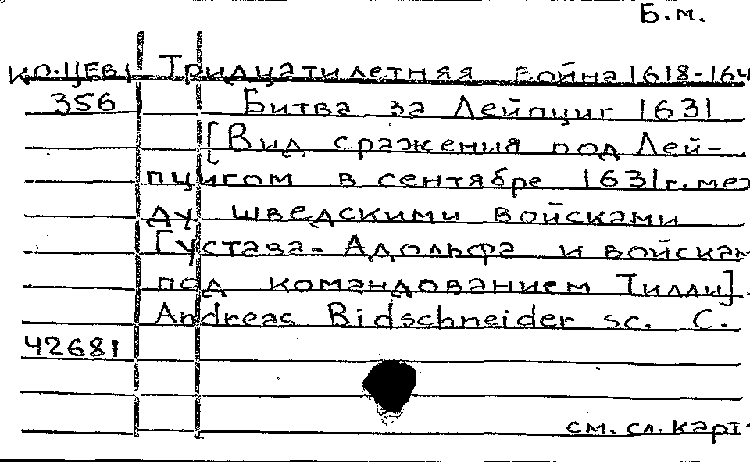 Б.м.
КО.ЦЕВ1 Тридцатилетняя война 1618-164
356 Битва за Лейпциг 1631
[Вид сражения под Лей-
пцигом в сентябре 1631г. меж
ду шведскими войсками
Густава-Адольфа и войскам
под командованием Тилли].
Andreas Bidschneider sc. С.
42681
см. сл. карт